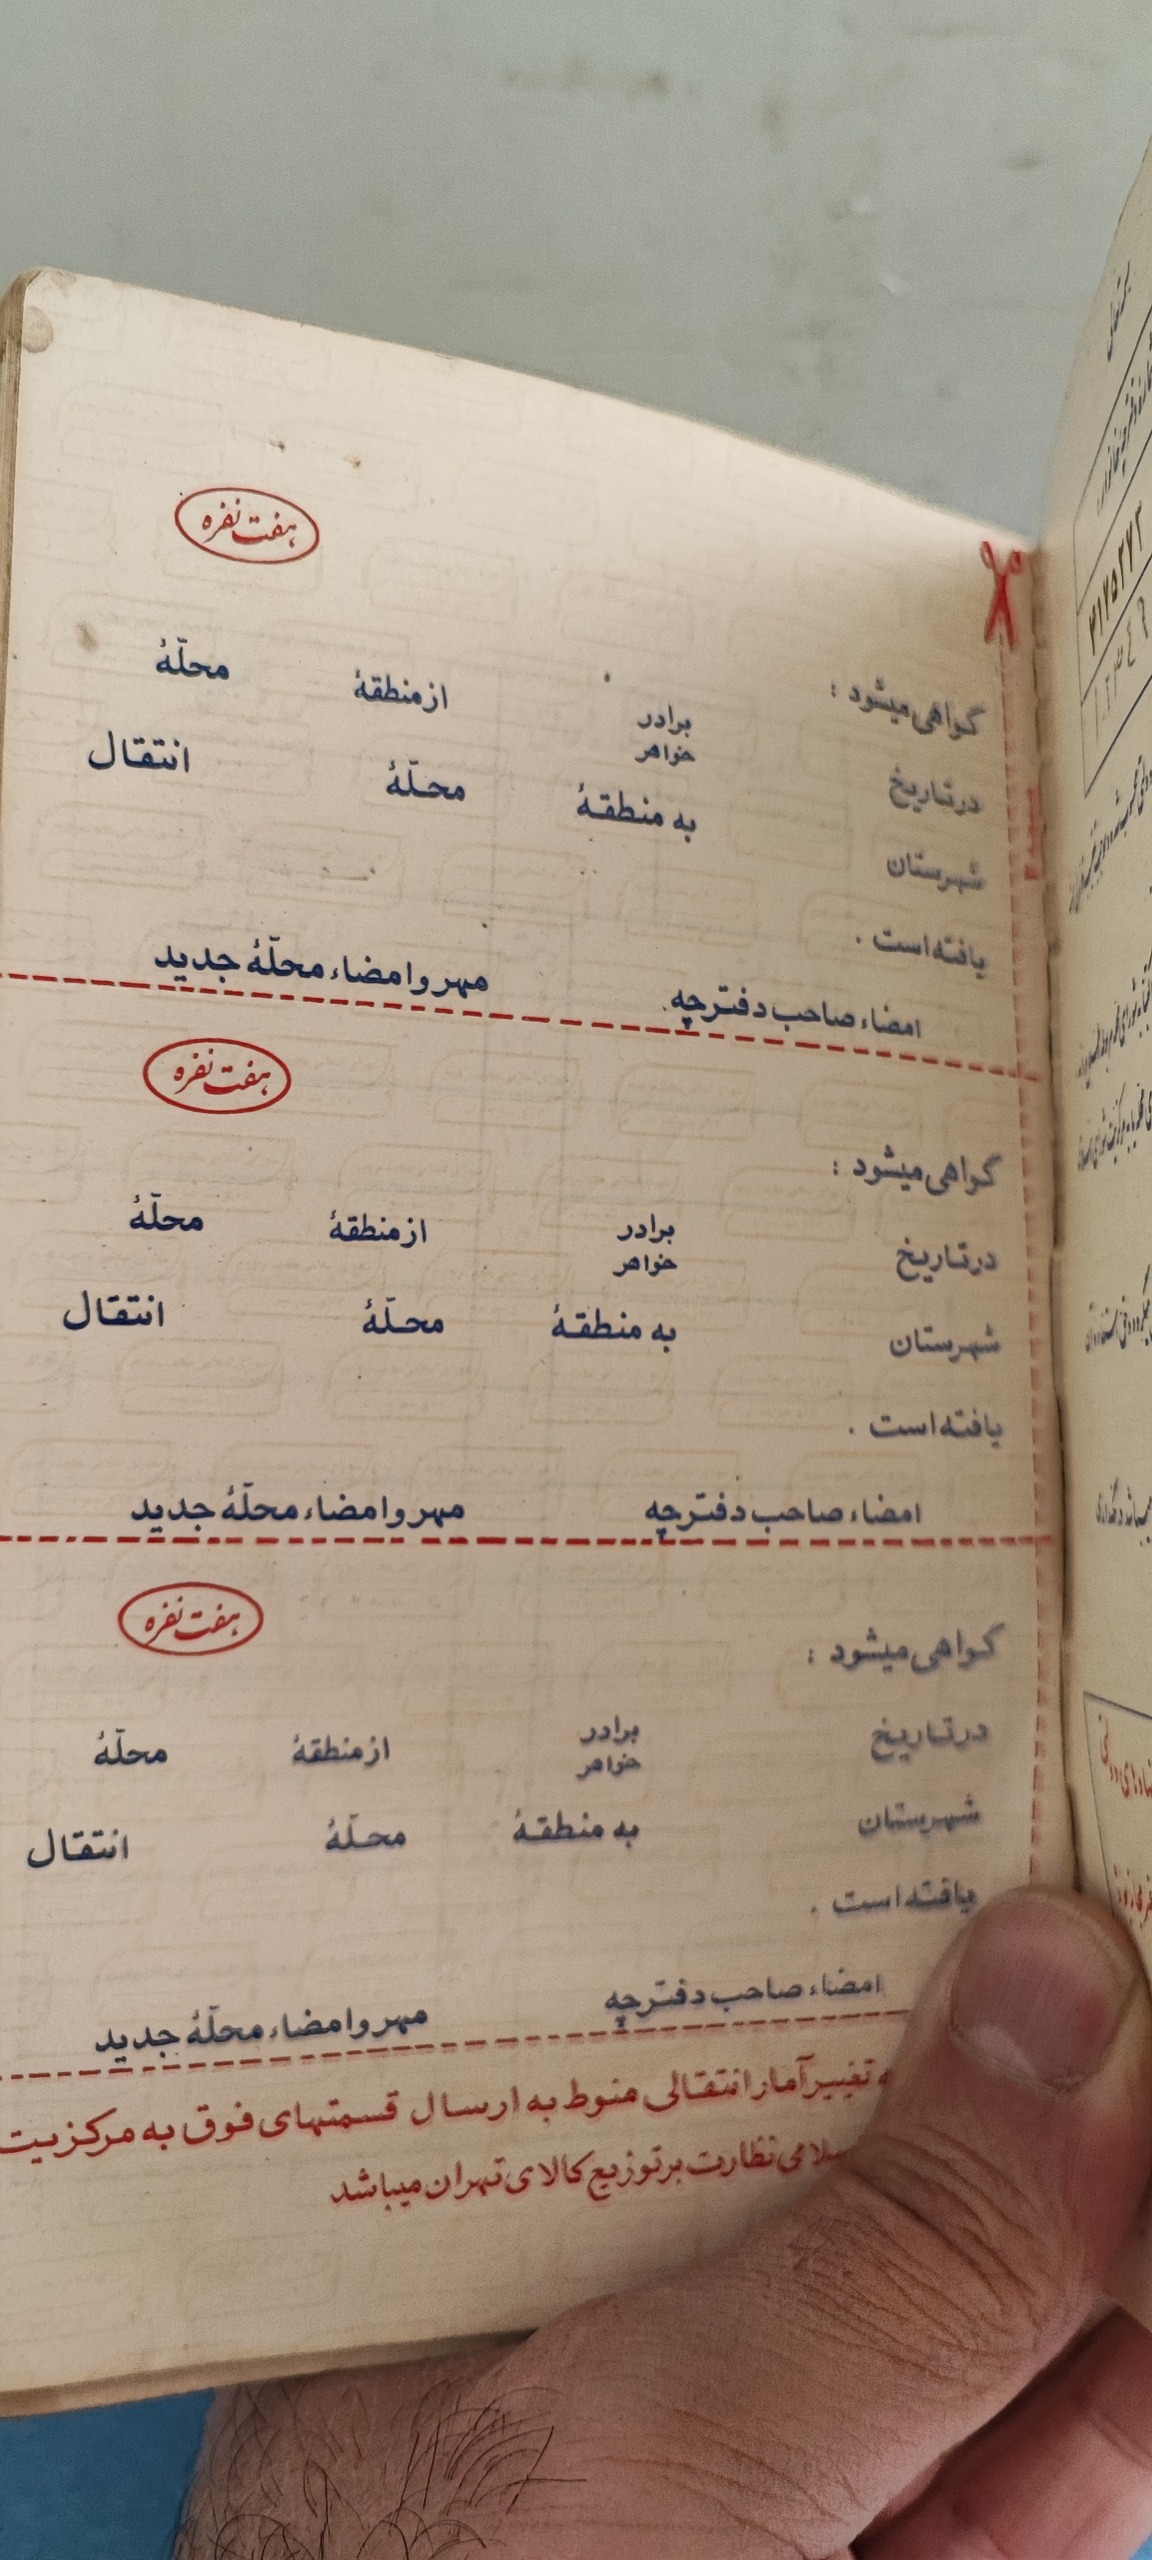 هفت نفره
گواهی میشود : برادر خواهر از منطقهٔ محلّهٔ
در تاریخ به منطقهٔ محلّهٔ انتقال
شهرستان
یافته است .
امضاء صاحب دفترچه مهر و امضاء محلّهٔ جدید
هفت نفره
گواهی میشود :
در تاریخ برادر خواهر از منطقهٔ محلّهٔ
شهرستان به منطقهٔ محلّهٔ انتقال
یافته است .
امضاء صاحب دفترچه مهر و امضاء محلّهٔ جدید
هفت نفره
گواهی میشود :
در تاریخ برادر خواهر از منطقهٔ محلّهٔ
شهرستان به منطقهٔ محلّهٔ انتقال
یافته است .
امضاء صاحب دفترچه مهر و امضاء محلّهٔ جدید
تغییر آمار انتقالی منوط به ارسال قسمتهای فوق به مرکزیت
نظارت بر توزیع کالای تهران میباشد
۳۱۷۵۲۷۲